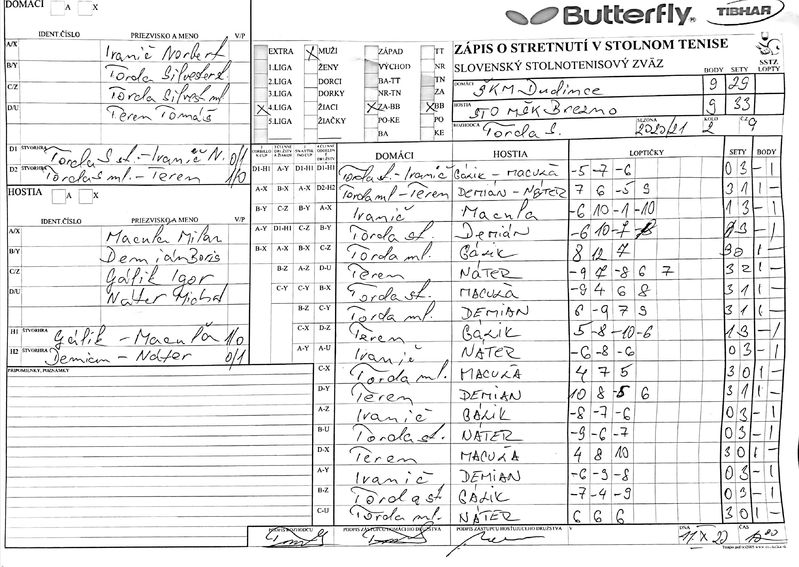 DOMÁCI A X
Butterfly TIBHAR
IDENT.ČÍSLO PRIEZVISKO A MENO V/P
A/X Ivanič Norbert
B/Y Torda Silvester st.
C/Z Torda Silvest. ml
D/U Terem Tomáš
EXTRA X MUŽI ZÁPAD TT
1.LIGA ŽENY VÝCHOD NR
2.LIGA DORCI BA-TT TN
3.LIGA DORKY NR-TN ZA
X 4.LIGA ŽIACI X ZA-BB X BB
5.LIGA ŽIAČKY PO-KE PO
BA KE
ZÁPIS O STRETNUTÍ V STOLNOM TENISE
SLOVENSKÝ STOLNOTENISOVÝ ZVÄZ
BODY SETY SSTZ LOPTY
DOMÁCI ŠKM Dudince 9 29
HOSTIA STO MŠK Brezno 9 33
ROZHODCA Torda S. SEZÓNA 2020/21 KOLO 2 Č.Z. 9
D1 ŠTVORHRA Torda S st. - Ivanič N. 0/1
D2 ŠTVORHRA Torda S ml. - Terem 1/0
HOSTIA A X
IDENT.ČÍSLO PRIEZVISKO A MENO V/P
A/X Macula Milan
B/Y Demian Boris
C/Z Gálik Igor
D/U Náter Michal
H1 ŠTVORHRA Gálik - Macula 1/0
H2 ŠTVORHRA Demian - Náter 0/1
PRIPOMIENKY, POZNÁMKY
DOMÁCI HOSTIA LOPTIČKY SETY BODY
D1-H1 A-Y D1-H1 D1-H1 Torda st. - Ivanič Gálik - Macula -5 -7 -6 0 3 - 1
A-X B-X A-X D2-H2 Torda ml - Terem Demián - Náter 7 6 -5 9 3 1 1 -
B-Y C-Z B-Y A-X Ivanič Macula -6 10 -1 -10 1 3 - 1
A-Y D1-H1 C-Z B-Y Torda st. Demián -6 10 -7 1 3 - 1
B-X A-X B-X C-Z Torda ml. Gálik 8 12 7 3 0 1 -
B-Z A-Z D-U Terem Náter -9 7 -8 6 7 3 2 1 -
C-Y C-Y B-X Torda st. Macula -9 4 6 8 3 1 1 -
B-Z C-Y Torda ml. Demian 6 -9 7 9 3 1 1 -
C-X D-Z Terem Gálik 5 -8 -10 -6 1 3 - 1
A-Y A-U Ivanič Náter -6 -8 -6 0 3 - 1
C-X Torda ml. Macula 4 7 5 3 0 1 -
D-Y Terem Demian 10 8 -5 6 3 1 1 -
A-Z Ivanič Gálik -8 -7 -6 0 3 - 1
B-U Torda st. Náter -9 -6 -7 0 3 - 1
D-X Terem Macula 4 8 10 3 0 1 -
A-Y Ivanič Demian -6 -9 -8 0 3 - 1
B-Z Torda st. Gálik -7 -4 -9 0 3 - 1
C-U Torda ml. Náter 6 6 6 3 0 1 -
PODPIS ROZHODCU PODPIS ZÁSTUPCU DOMÁCEHO DRUŽSTVA PODPIS ZÁSTUPCU HOSŤUJÚCEHO DRUŽSTVA V DŇA 11.X 20 ČAS